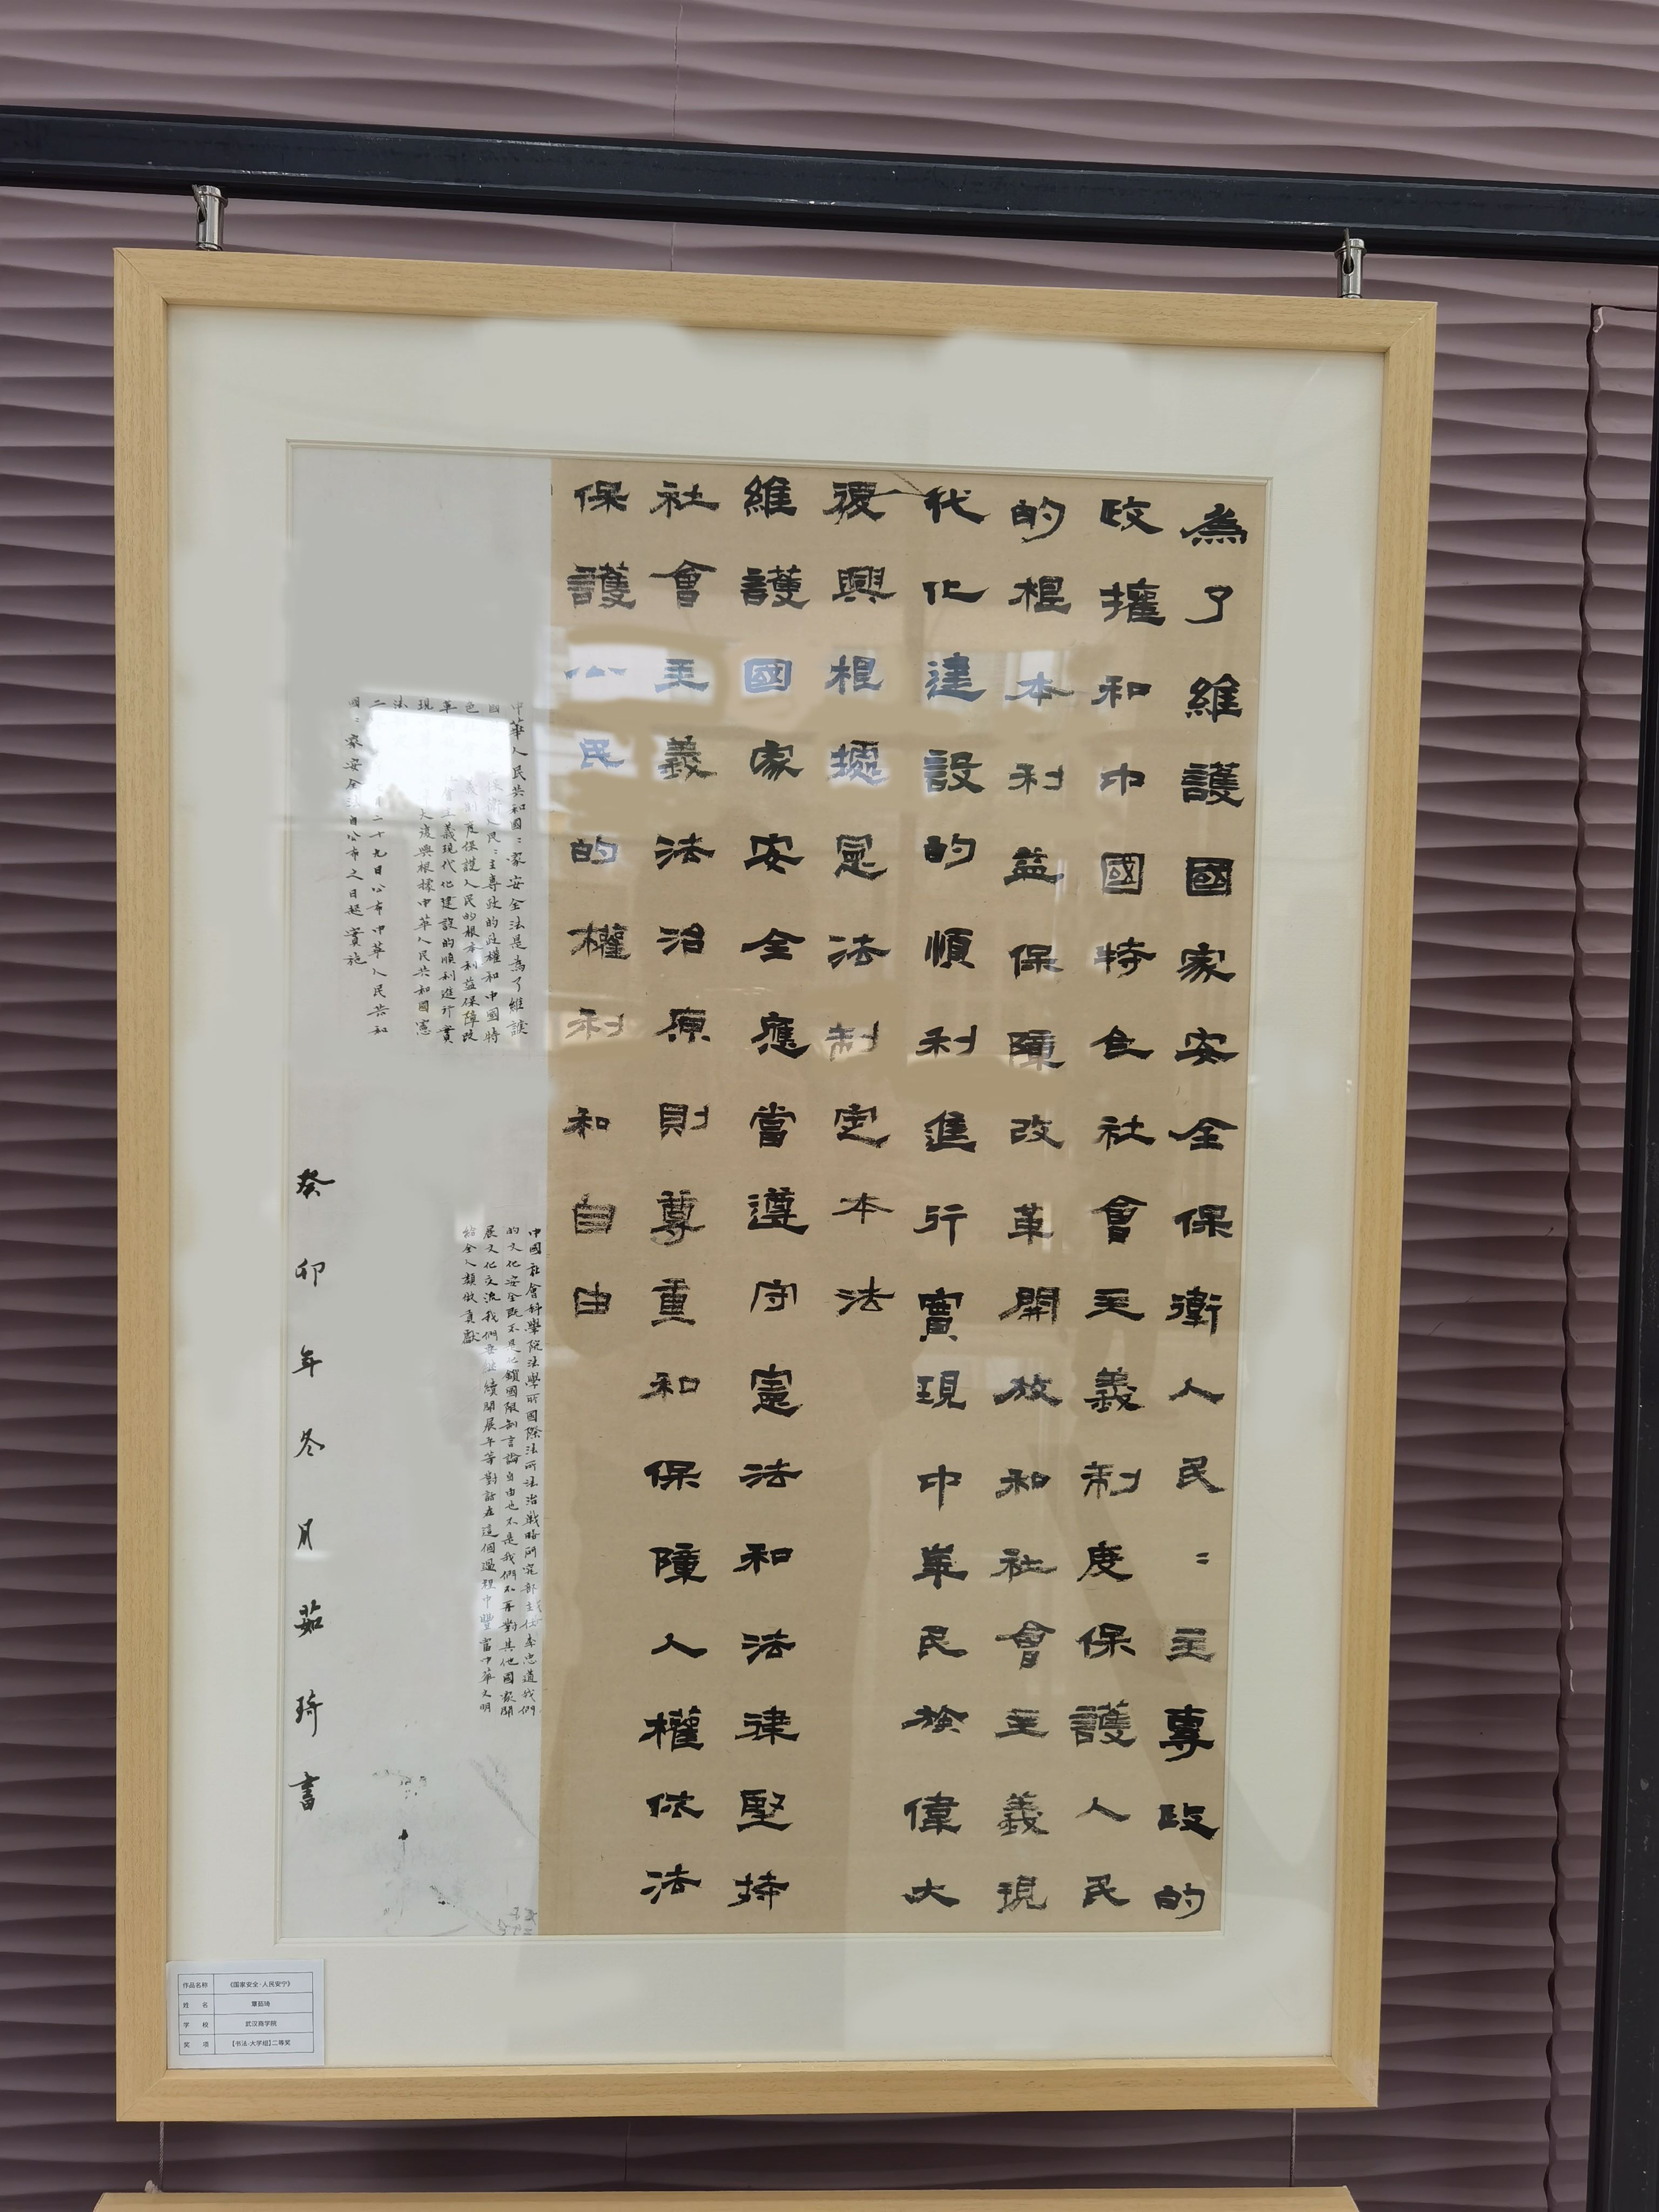 為了維護國家安全保衛人民：主專政的
政權和中國特色社會主義制度保護人民
的根本利益保障改革開放和社會主義現
代化建設的順利進行實現中華民族偉大
復興根據憲法制定本法
維護國家安全應當遵守憲法和法律堅持
社會主義法治原則尊重和保障人權依法
保護公民的權利和自由
中華人民共和國：家安全法是為了維護
國 保衛人民：主專政的政權和中國特
色 義制度保護人民的根本利益保障改
革 會主義現代化建設的順利進行實
現 大復興根據中華人民共和國憲
法
二 二十九日公布中華人民共和
國：家安全法自公布之日起實施
中國社會科學院法學所國際法所法治戰略研究部主任李忠道我們
的文化安全既不是 鎖國限制言論自由也不是我們不再對其他國家開
展文化交流我們要繼續開展平等對話在這個過程中豐富中華文明
給全人類做貢獻
癸卯年冬月茹琦書
作品名称 《国家安全·人民安宁》
姓 名 覃茹琦
学 校 武汉商学院
奖 项 【书法·大学组】二等奖